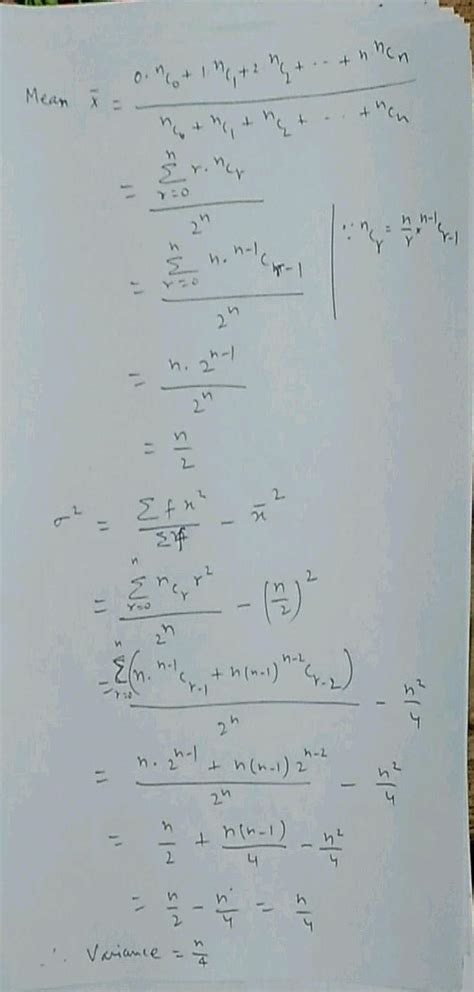 Mean x̄ = (0·ⁿC₀ + 1·ⁿC₁ + 2·ⁿC₂ + ··· + n ⁿCₙ) / (ⁿC₀ + ⁿC₁ + ⁿC₂ + ··· + ⁿCₙ)
= (Σ_{r=0}^{n} r·ⁿCᵣ) / 2ⁿ
∵ ⁿCᵣ = n/r · ⁿ⁻¹Cᵣ₋₁
= (Σ_{r=0}^{n} n·ⁿ⁻¹Cᵣ₋₁) / 2ⁿ
= (n·2ⁿ⁻¹) / 2ⁿ
= n/2
σ² = Σfx² / Σf − x̄²
= (Σ_{r=0}^{n} ⁿCᵣ r²) / 2ⁿ − (n/2)²
= Σ_{r=0}^{n} (n·ⁿ⁻¹Cᵣ₋₁ + n(n-1) ⁿ⁻²Cᵣ₋₂) / 2ⁿ − n²/4
= (n·2ⁿ⁻¹ + n(n-1) 2ⁿ⁻²) / 2ⁿ − n²/4
= n/2 + n(n-1)/4 − n²/4
= n/2 − n/4 = n/4
∴ Variance = n/4